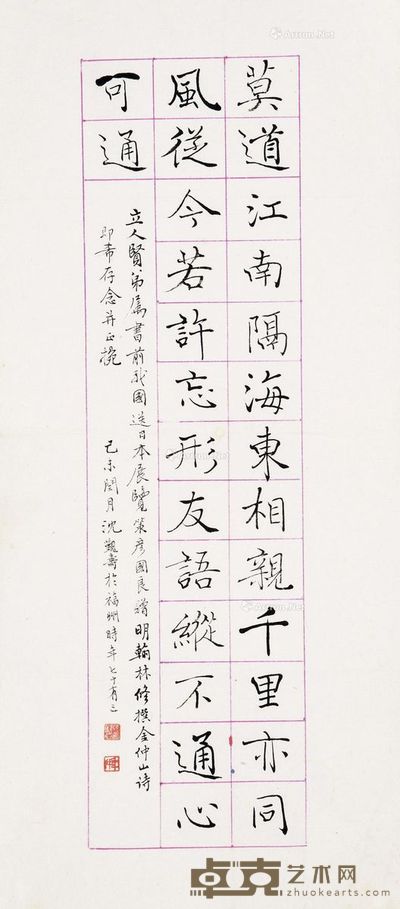 莫道江南隔海東相親千里亦同
風從今若許忘形友語縱不通心
可通
立人賢弟屬書前我國送日本展覽策彦國良贈明翰林修撰金仲山诗
即希存念并正
己未閏月沈覲壽於福州時年七十有三
Artron.Net
卓克艺术网
zhuokearts.com